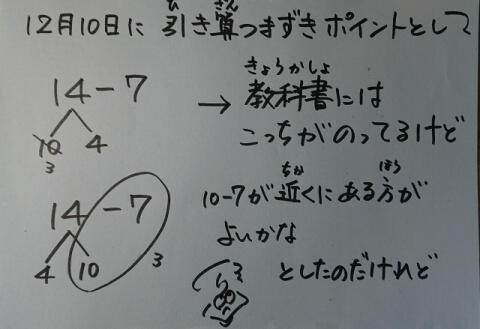 12月10日に引き算つまずきポイントとして
14-7
10 4
3
→ 教科書には
こっちがのってるけど
14-7
4 10
3
10-7が近くにある方が
よいかな
としたのだけれど